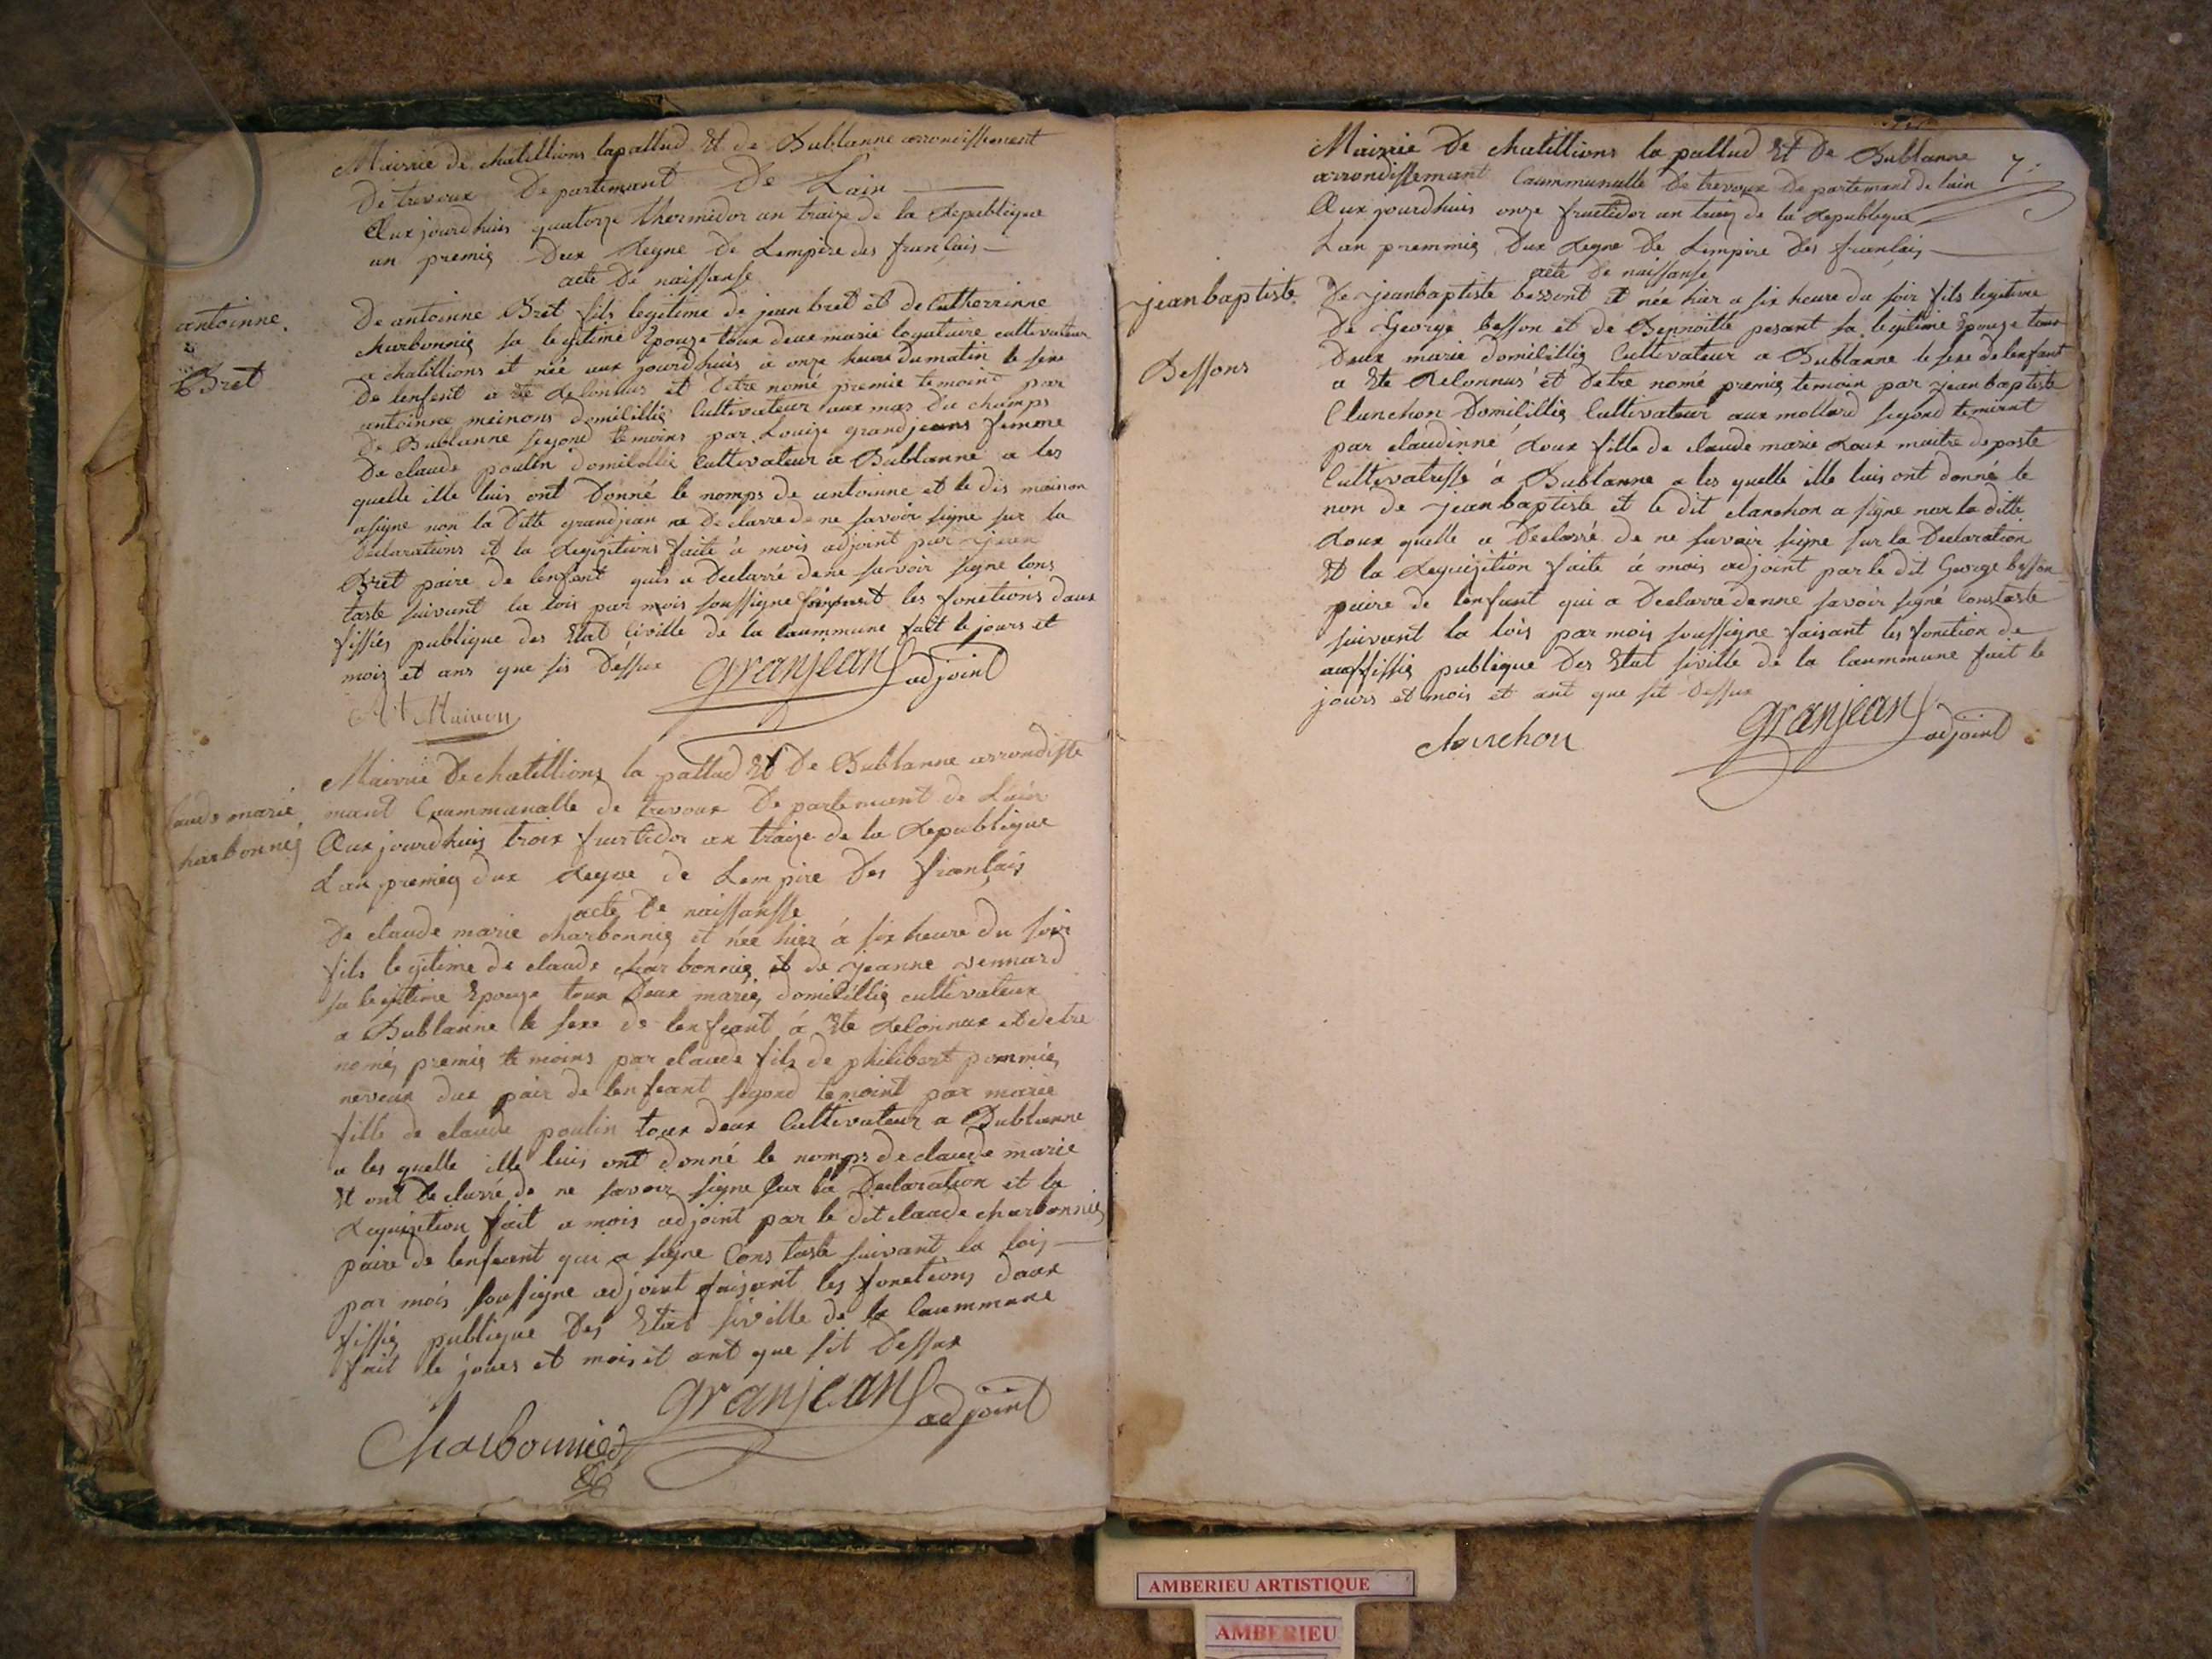 Mairie de chatillions lapallud Et de Bublanne arrondissement
De trevoux Departemant De Lain
Aux jourdhuis quatorze thermidor an traize de la Republique
un premig Dux Regne De Lempire des français
acte De naissansse
antoinne
Bret
De antoinne Bret fils legitime de jean bret et de Catherinne
charbonnig sa legitime Epouze toux deux marié cultivateur
a chatillions et née aux jourdhuis a onze heure Dumatin le sexe
De lenfent a Eté Reconnus et Detre nomé premie temoint par
antoinne mainons domicillig Cultivateur aux mas Du champs
De Bublanne segond temoins par Louize grandjeans femme
De claude poulin domicillie Cultivateur a Bublanne a les
quelle ille luis ont Donné le nomps de antoinne et le dis mainon
a signe non la Ditte grandjean a Declarre de ne savoir signe sur la
Declarations et la Requizitions faite à mois adjoint par jean
Bret paire de lenfent quis a Declarré dene savoir signe Cons
taste suivant la lois par mois soussigne faisant les fonctions daux
fissiés publique des Etat Civille de la Caummune fait le jours et
mois et ans que sis Dessux
granjean adjoint
At Mainon
Mairie De chatillions la pallud Et De Bublanne arrondisse
mant Caummunalle de trevoux Departemant de Lain
aude marie
harbonnig
Aux jourdhuis troix fructidor an traize de la Republique
Lan premieg dux Regne de Lempire Des français
acte De naissansse
De claude marie charbonnig et née hier à six heure du soir
fils legitime de claude charbonnig et de jeanne vennard
sa legitime Epouze toux Deux marié domicillig cultivateur
a Bublanne le sexe de lenfeant à Ete Reconnux et detre
nomé premig temoins par claude fils de philibert pommié
neveux dux pair de lenfeant segond temoint par marie
fille de claude poulin toux deux Cultivateur a Bublanne
a les quelle ille luis ont donné le nomps de claude marie
Et ont declarré de ne savoir signe sur la Declaration et la
Requizition fait a mois adjoint par le dit claude charbonnig
paire de lenfeant qui a signe Constaste suivant la lois
par mois sousigne adjoint faisant les fonctions daux
fissig publique Des Etat siville de la Caummune
fait le jours et mois et ant que sit Dessux
granjean adjoint
Charbonnied
Mairie De chatillions la pallud Et De Bublanne
7
arrondissemant Caummunalle De trevoux Departemant de lain
Aux jourdhuis onze fructidor an traiz de la Republique
Lan premmig Dux Regne De Limpire Des français
acte De naissansé
jeanbaptiste
Bessons
De jeanbaptiste bessont et née hier a six heure du soir fils legitime
De George besson et de Bennoitte pesant sa legitime Epouze toux
Deux marie domicillig Cultivateur a Bublanne le sexe delenfant
a Ete Reconnus et Detre nomé premig temoin par jean baptiste
Clanchon Domicillig Cultivateur aux mollard segond temoint
par claudinne Roux fille de claude marie Roux maitre de poste
Cultivatrisse à Bublanne a les quelle ille luis ont donné le
non de jeanbaptiste et le dit clanchon a signe non la ditte
Roux quelle a Declarré de ne savoir signe sur la Declaration
Et la Requizition faite à mois adjoint parle dit George besson
paire de lenfant qui a Declarre denne savoir signé Constaste
suivant la lois par mois soussigne faisant les fonction de
auffissig publique Des Etat siville de la Caummune fait le
jours et mois et ant que sit Dessux
clanchon
granjean adjoint
AMBERIEU ARTISTIQUE
AMBERIEU